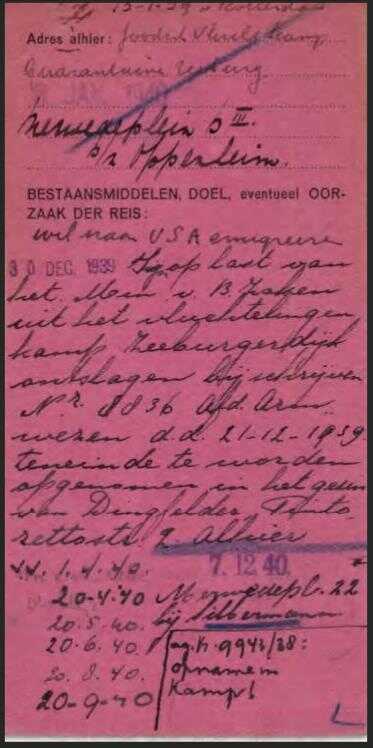 13-1-39 Rotterdam
Adres alhier: Joodsch Vluchtkamp
Quarantaine Zeeburg
JAN 1940
Merwedeplein 5 III.
p/a Oppenheim.
BESTAANSMIDDELEN, DOEL, eventueel OOR-
ZAAK DER REIS:
wil naar USA emigreeren
30 DEC. 1939 Is op last van
het Min v. B. Zaken
uit het vluchtelingen
kamp Zeeburgerdijk
ontslagen bij schrijven
Nr. 8836 Afd. Arm
wezen d.d. 21-12-1939
teneinde te worden
opgenomen in het gezin
van Dingfelder, Tinto
rettostr. 2. Alhier
1.4.40. 7.12 40.
20-4-'40 Merwedepl. 22
20.5.40. bij Silbermann
20-6.40. ag. K. 9943/38:
20.8.40. opname in
20-9-40 Kamp!